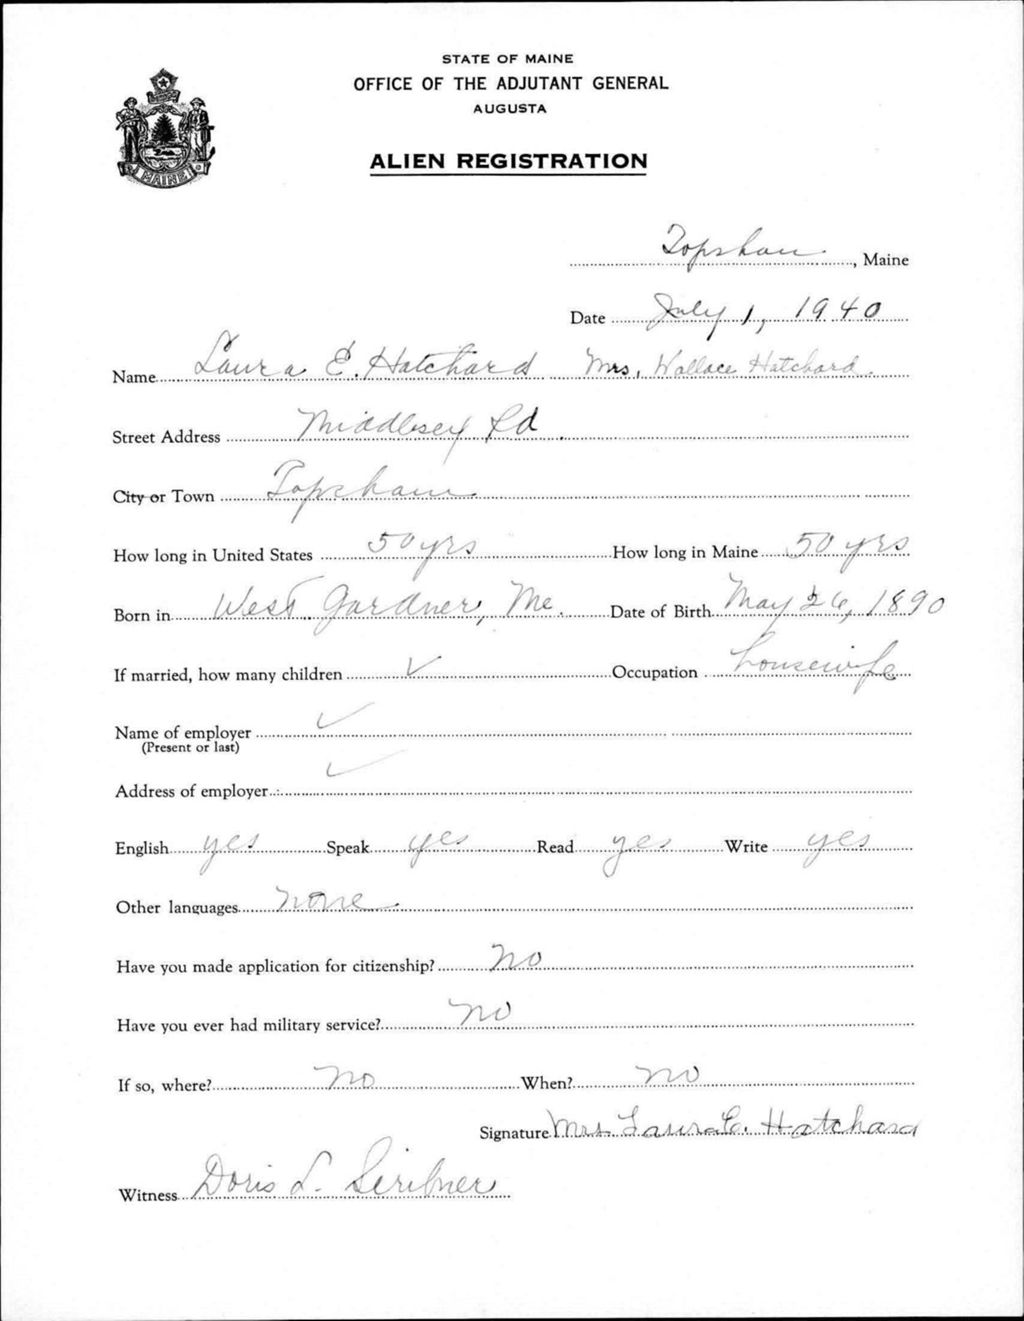 STATE OF MAINE
OFFICE OF THE ADJUTANT GENERAL
AUGUSTA
ALIEN REGISTRATION
MAINE
Topsham, Maine
Date July 1, 1940
Name Laura E. Hatchard Mrs. Wallace Hatchard.
Street Address Middlesex Rd.
City or Town Topsham
How long in United States 50 yrs How long in Maine 50 yrs
Born in West Gardner, Me. Date of Birth May 26, 1890
If married, how many children ✓ Occupation housewife
Name of employer ✓
(Present or last)
Address of employer ✓
English yes Speak yes Read yes Write yes
Other languages none.
Have you made application for citizenship? No
Have you ever had military service? no
If so, where? no When? no
Signature Mrs. Laura E. Hatchard
Witness Doris L. Scribner